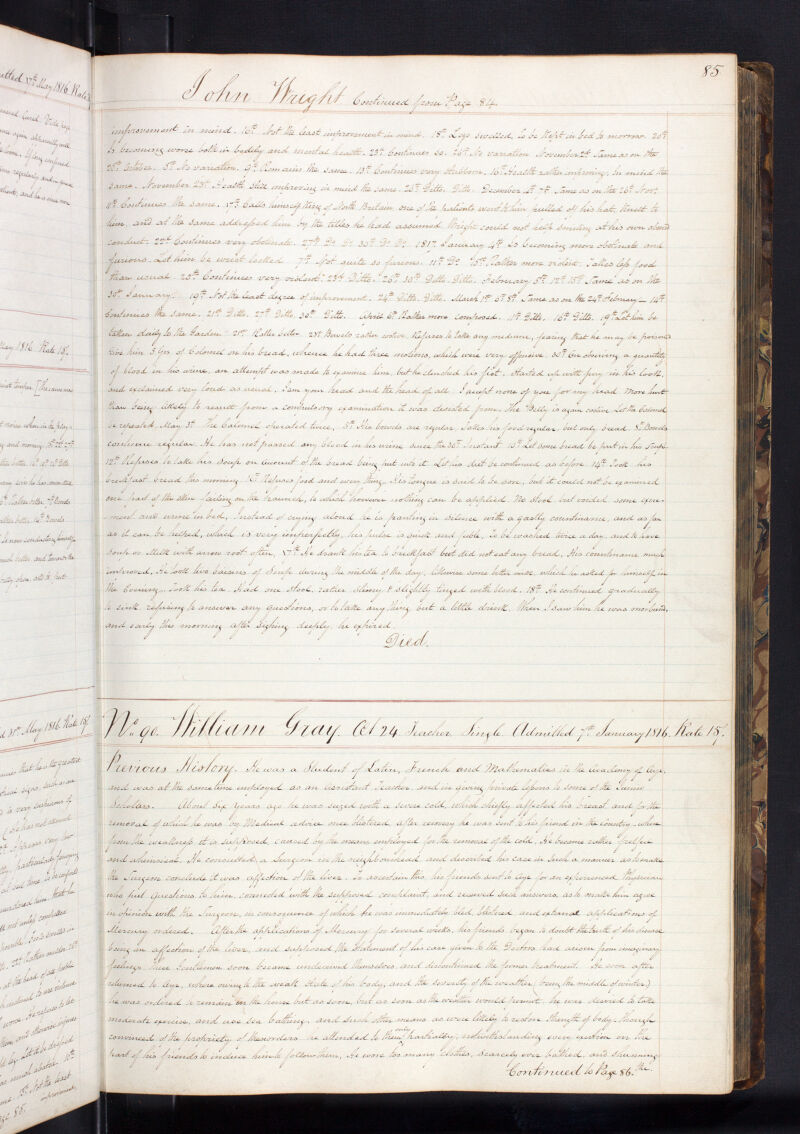 85
John Wright Continued from Page 84
improvement in mind. 16th Not the least improvement in mind. 18th Legs swelled, to be kept in bed to morrow. 20th
Is becoming worse both in bodily and mental health. 23rd Continues so. 26th No variation November 2d Same as on the
26th October. 5th No variation. 9th Remains the same. 13th Continues very stubborn. 16th Health rather improving, in mind the
same. November 23rd Health still improving in mind the same. 26th Ditto. Ditto. December 4th 7th Same as on the 26th Novr
11th Continues the same. 17th Calls himself King of North Britain one of the patients went to him pulled off his hat, knelt to
him, and at the same addressed him by the titles he had assumed Wright could not help smiling at his own absurd
conduct. 22nd Continues very obstinate. 27th Do Do 30th Do Do. 1817 January 4th Is becoming more obstinate and
furious. Let him be wrist locked 7th Not quite so furious. 11th Do. 15th Rather more violent. Takes less food
than usual. 20th Continues very violent. 23rd Ditto. 26th 30th Ditto. Ditto. February 5th 12th 15th Same as on the
30th January. 19th Not the least degree of improvement. 24th Ditto. Ditto. March 1st 5th 8th Same as on the 24th February 14th
Continues the same. 21st Ditto. 27th Ditto 30th Ditto. April 6th Rather more composed. 11th Ditto. 16th Ditto. 19th Let him be
taken daily to the Garden. 21st Rather better. 29th Bowels rather costive. Refuses to take any medicine, fearing that he may be poisoned
Give him 5 Grs of Calomel on his bread, whence he had three motions, which were very offensive 30th On observing a quantity
of blood in his urine, an attempt was made to examine him, but he clenched his fist, started up with fury in his look,
and exclaimed very loud as usual. I am your head and the head of all. I accept none of you for my head More hurt
than being likely to result from a compulsory examination it was desisted from. The Belly is again costive Let the Calomel
be repeated. May 3rd The Calomel operated twice. 5th His bowels are regular. Takes his food regular but only bread 8th Bowels
continue regular. He has not passed any blood in his urine since the 30th Instant 10th Let some bread be put in his Soup
12th Refuses to take his Soup on account of the bread being put into it Let his diet be continued as before. 14th Took his
breakfast bread this morning 15th Refuses food and every thing. His tongue is said to be sore, but it could not be examined
one part of the skin of the is bruised, to which however nothing can be applied No stool but voided some excre-
ment and urine in bed, Instead of crying aloud he is panting in silence with a ghastly countenance, and as far
as it can be helped, which is very imperfectly, his pulse is quick and feeble. To be washed twice a day, and to have
soup or Milk with arrow root often. 17th He drank his tea to breakfast but did not eat any bread. His countenance much
improved. He took two basins of Soup during the middle of the day, likewise some butter milk which he asked for himself, in
the Evening Took his tea. Had one stool rather slimy & slightly tinged with blood. 18th He continued gradually
to sink refusing to answer any questions, or to take any thing but a little drink. When I saw him he was moribundus,
and early this morning after sighing deeply, he expired.
Died.
No. 90. William Gray. Æt 24 Teacher Single Admitted 7th January 1816. Rate 15/.
Previous History. He was a Student of Latin, French and Mathematics in the Academy of Ayr,
and was at the same time employed as an assistant Teacher, and in giving private lessons to some of the Junior
Scholars. About six years ago he was seized with a severe cold, which chiefly affected his breast and for the
removal of which he was by Medical advice once blistered, after recovery he was sent to his friend in the country, when
from the weakness it is supposed, caused by the means employed for the removal of the cold. He became rather fretful
and whimsical. He consulted, a Surgeon in the neighbourhood and described his case in such a manner as to make
the Surgeon conclude it was affection of the liver. To ascertain this, his friends sent to Ayr for an experienced Physician
who put questions to him, connected with the supposed complaint, and received such answers, as to make him agree
in opinion with the Surgeon, in consequence of which he was immediately bled, blistered and external applications of
Mercury ordered. After the applications of Mercury for several weeks, his friends began to doubt the truth of his disease
being an affection of the liver, and supposed the statement of his case given to the Doctors had arisen from imaginary
feelings, these Gentlemen soon became undeceived themselves, and discontinued the former treatment. He soon after
returned to Ayr, where owing to the weak state of his body, and the severity of the weather (being the middle of winter)
he was ordered to remain in the house but as soon, but as soon as the weather would permit he was desired to take
moderate exercise, and use sea bathing, and such other means as were likely to restore strength of body. Though
convinced of the propriety of these orders he attended to them only partially, notwithstanding every exertion on the
part of his friends to induce him to follow them. He wore too many clothes, scarcely ever bathed, and shunning
Continued to Page 86.